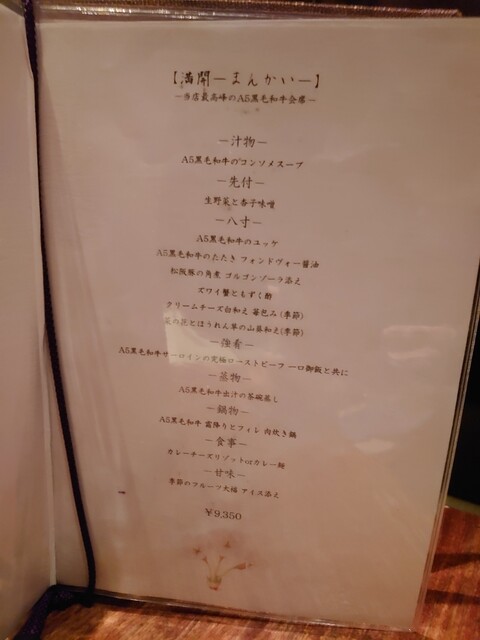 【満開―まんかい―】
―当店最高峰のA5黒毛和牛会席―
―汁物―
A5黒毛和牛のコンソメスープ
―先付―
生野菜と杏子味噌
―八寸―
A5黒毛和牛のユッケ
A5黒毛和牛のたたき フォンドヴォー醤油
松阪豚の角煮 ゴルゴンゾーラ添え
ズワイ蟹ともずく酢
クリームチーズ白和え 苺包み(季節)
菜の花とほうれん草の山葵和え(季節)
―強肴―
A5黒毛和牛サーロインの究極ローストビーフ 一口御飯と共に
―蒸物―
A5黒毛和牛出汁の茶碗蒸し
―鍋物―
A5黒毛和牛 霜降りとフィレ 肉炊き鍋
―食事―
カレーチーズリゾットorカレー麺
―甘味―
季節のフルーツ大福 アイス添え
¥9,350